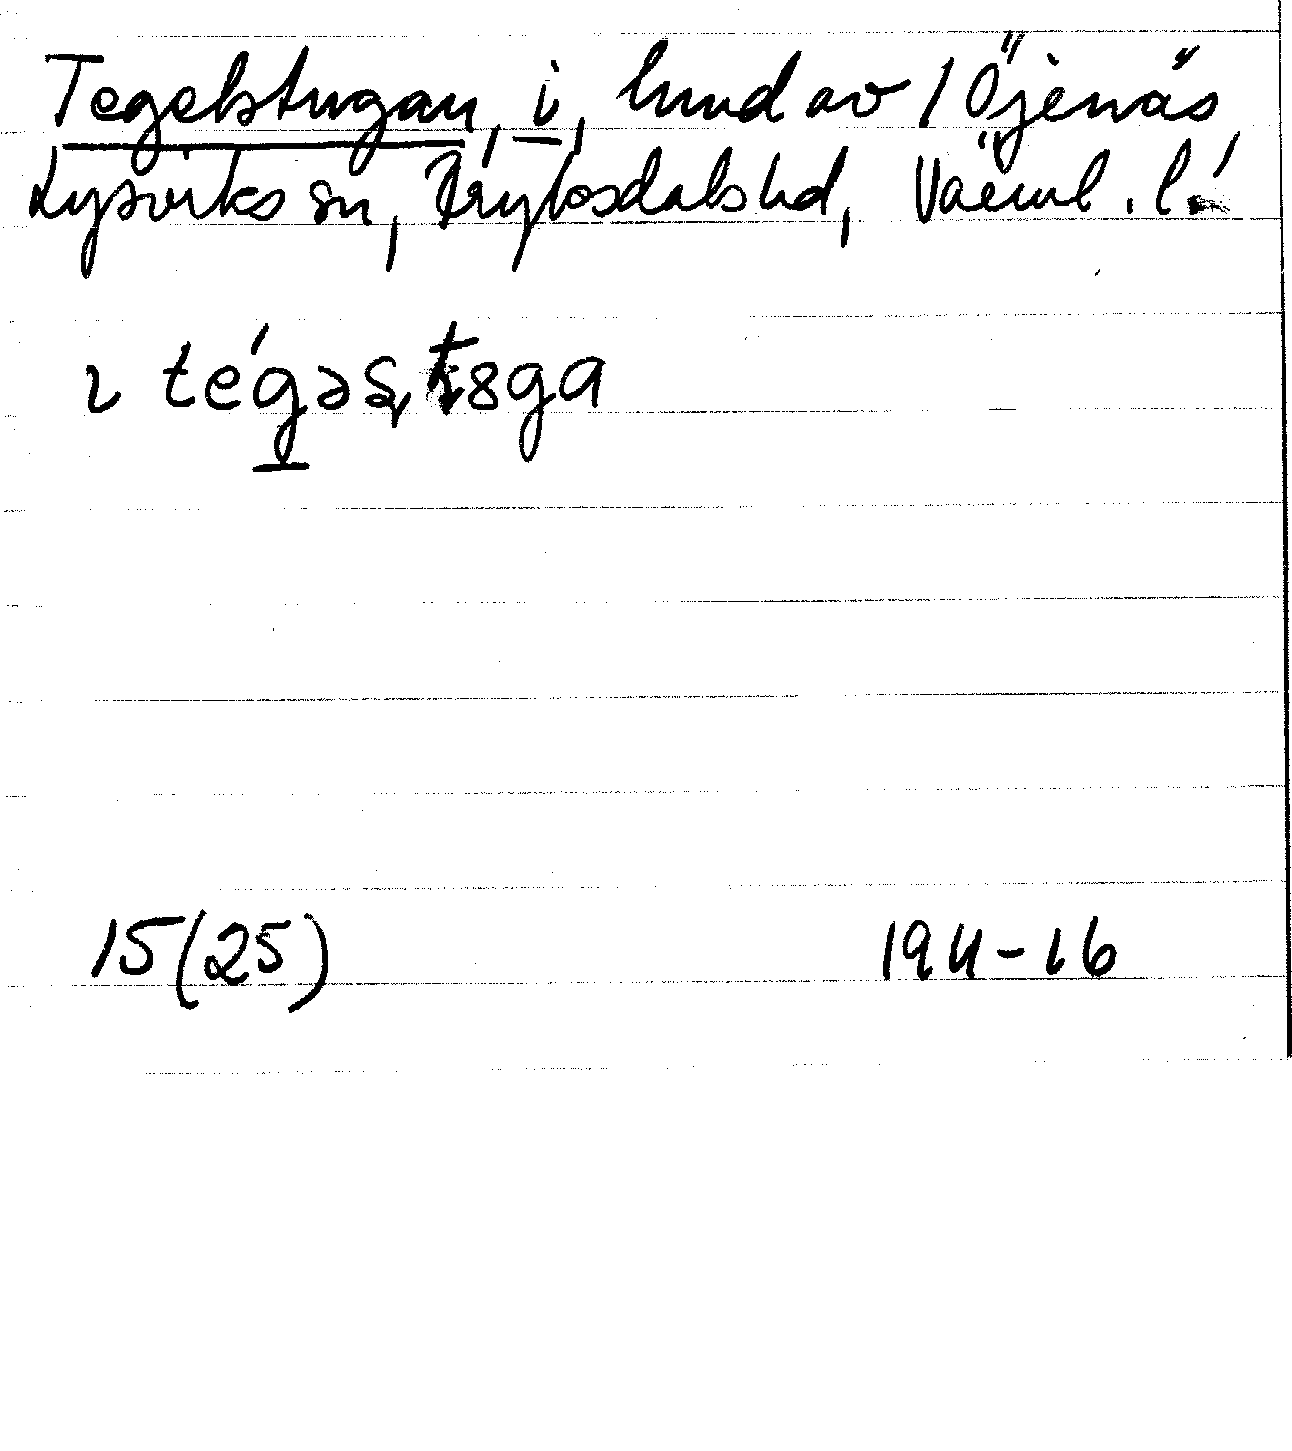 Tegelstugan, i, hmd av 1 Öjenäs,
Lysviks sn, Fryksdals hd, Värml. l.
ɩ tégəʂʈ8ga
15(25) 1911-16